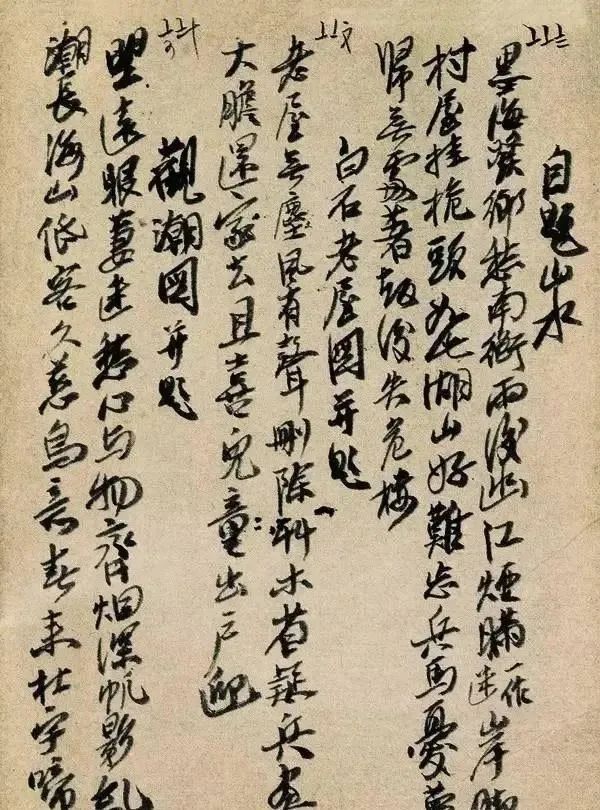 自題山水
墨海鄉愁南衡雨後幽江煙瞞一作迷岸腳
村屋挂桅頭如此湖山好難忘兵馬憂夢
歸無處著劫後失危樓
白石老屋圖并題
老屋無塵風有聲刪除木省疑兵畫
大膽還家去且喜兒童出戶迎
觀潮圖并題
望遠眼萋迷愁心与物齊烟深帆影亂
潮長海山低客久慈烏意春來杜宇啼